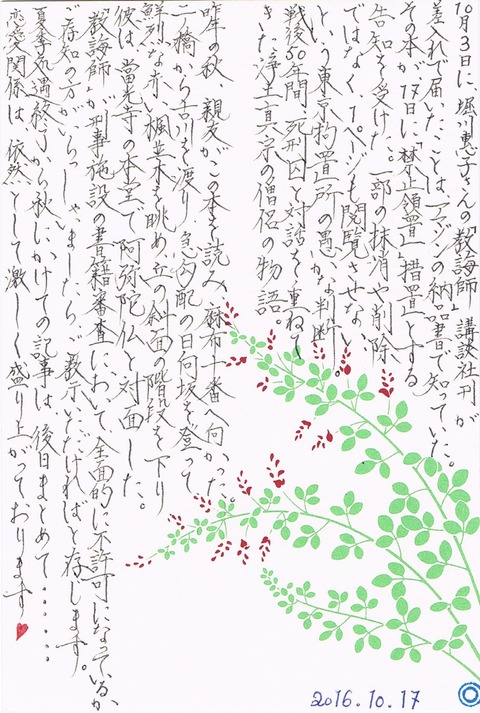 10月3日に、堀川惠子さんの『教誨師』講談社刊が
差入れで届いたことはアマゾンの納品書で知っていた。
その本が17日に「禁止領置」措置とする
告知を受けた。一部の抹消や削除
ではなく、1ページも閲覧させない
という東京拘置所の愚かな判断。
戦後50年間、死刑囚と対話を重ねて
きた浄土真宗の僧侶の物語
昨年の秋、親友がこの本を読み、麻布十番へ向かった。
二ノ橋から古川を渡り、急勾配の日向坂を登って
鮮烈な赤い楓並木を眺め、丘の斜面の階段を下り
彼は、當光寺の本堂で、阿弥陀仏と対面した。
『教誨師』が刑事施設の書籍審査において、全面的に不許可になっているか、
ご存知の方がいらっしゃいましたらご教示いただければと存じます。
夏季処遇終了から秋にかけての記事は、後日まとめて……
恋愛関係は、依然として激しく盛り上がっております
2016.10.17